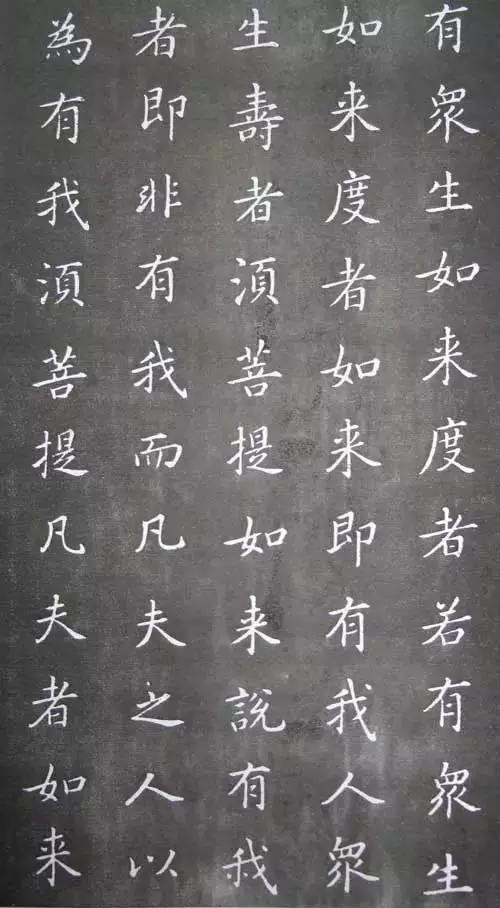 有衆生如来度者若有衆生
如来度者如来即有我人衆
生壽者湏菩提如来說有我
者即非有我而凡夫之人以
為有我湏菩提凡夫者如来